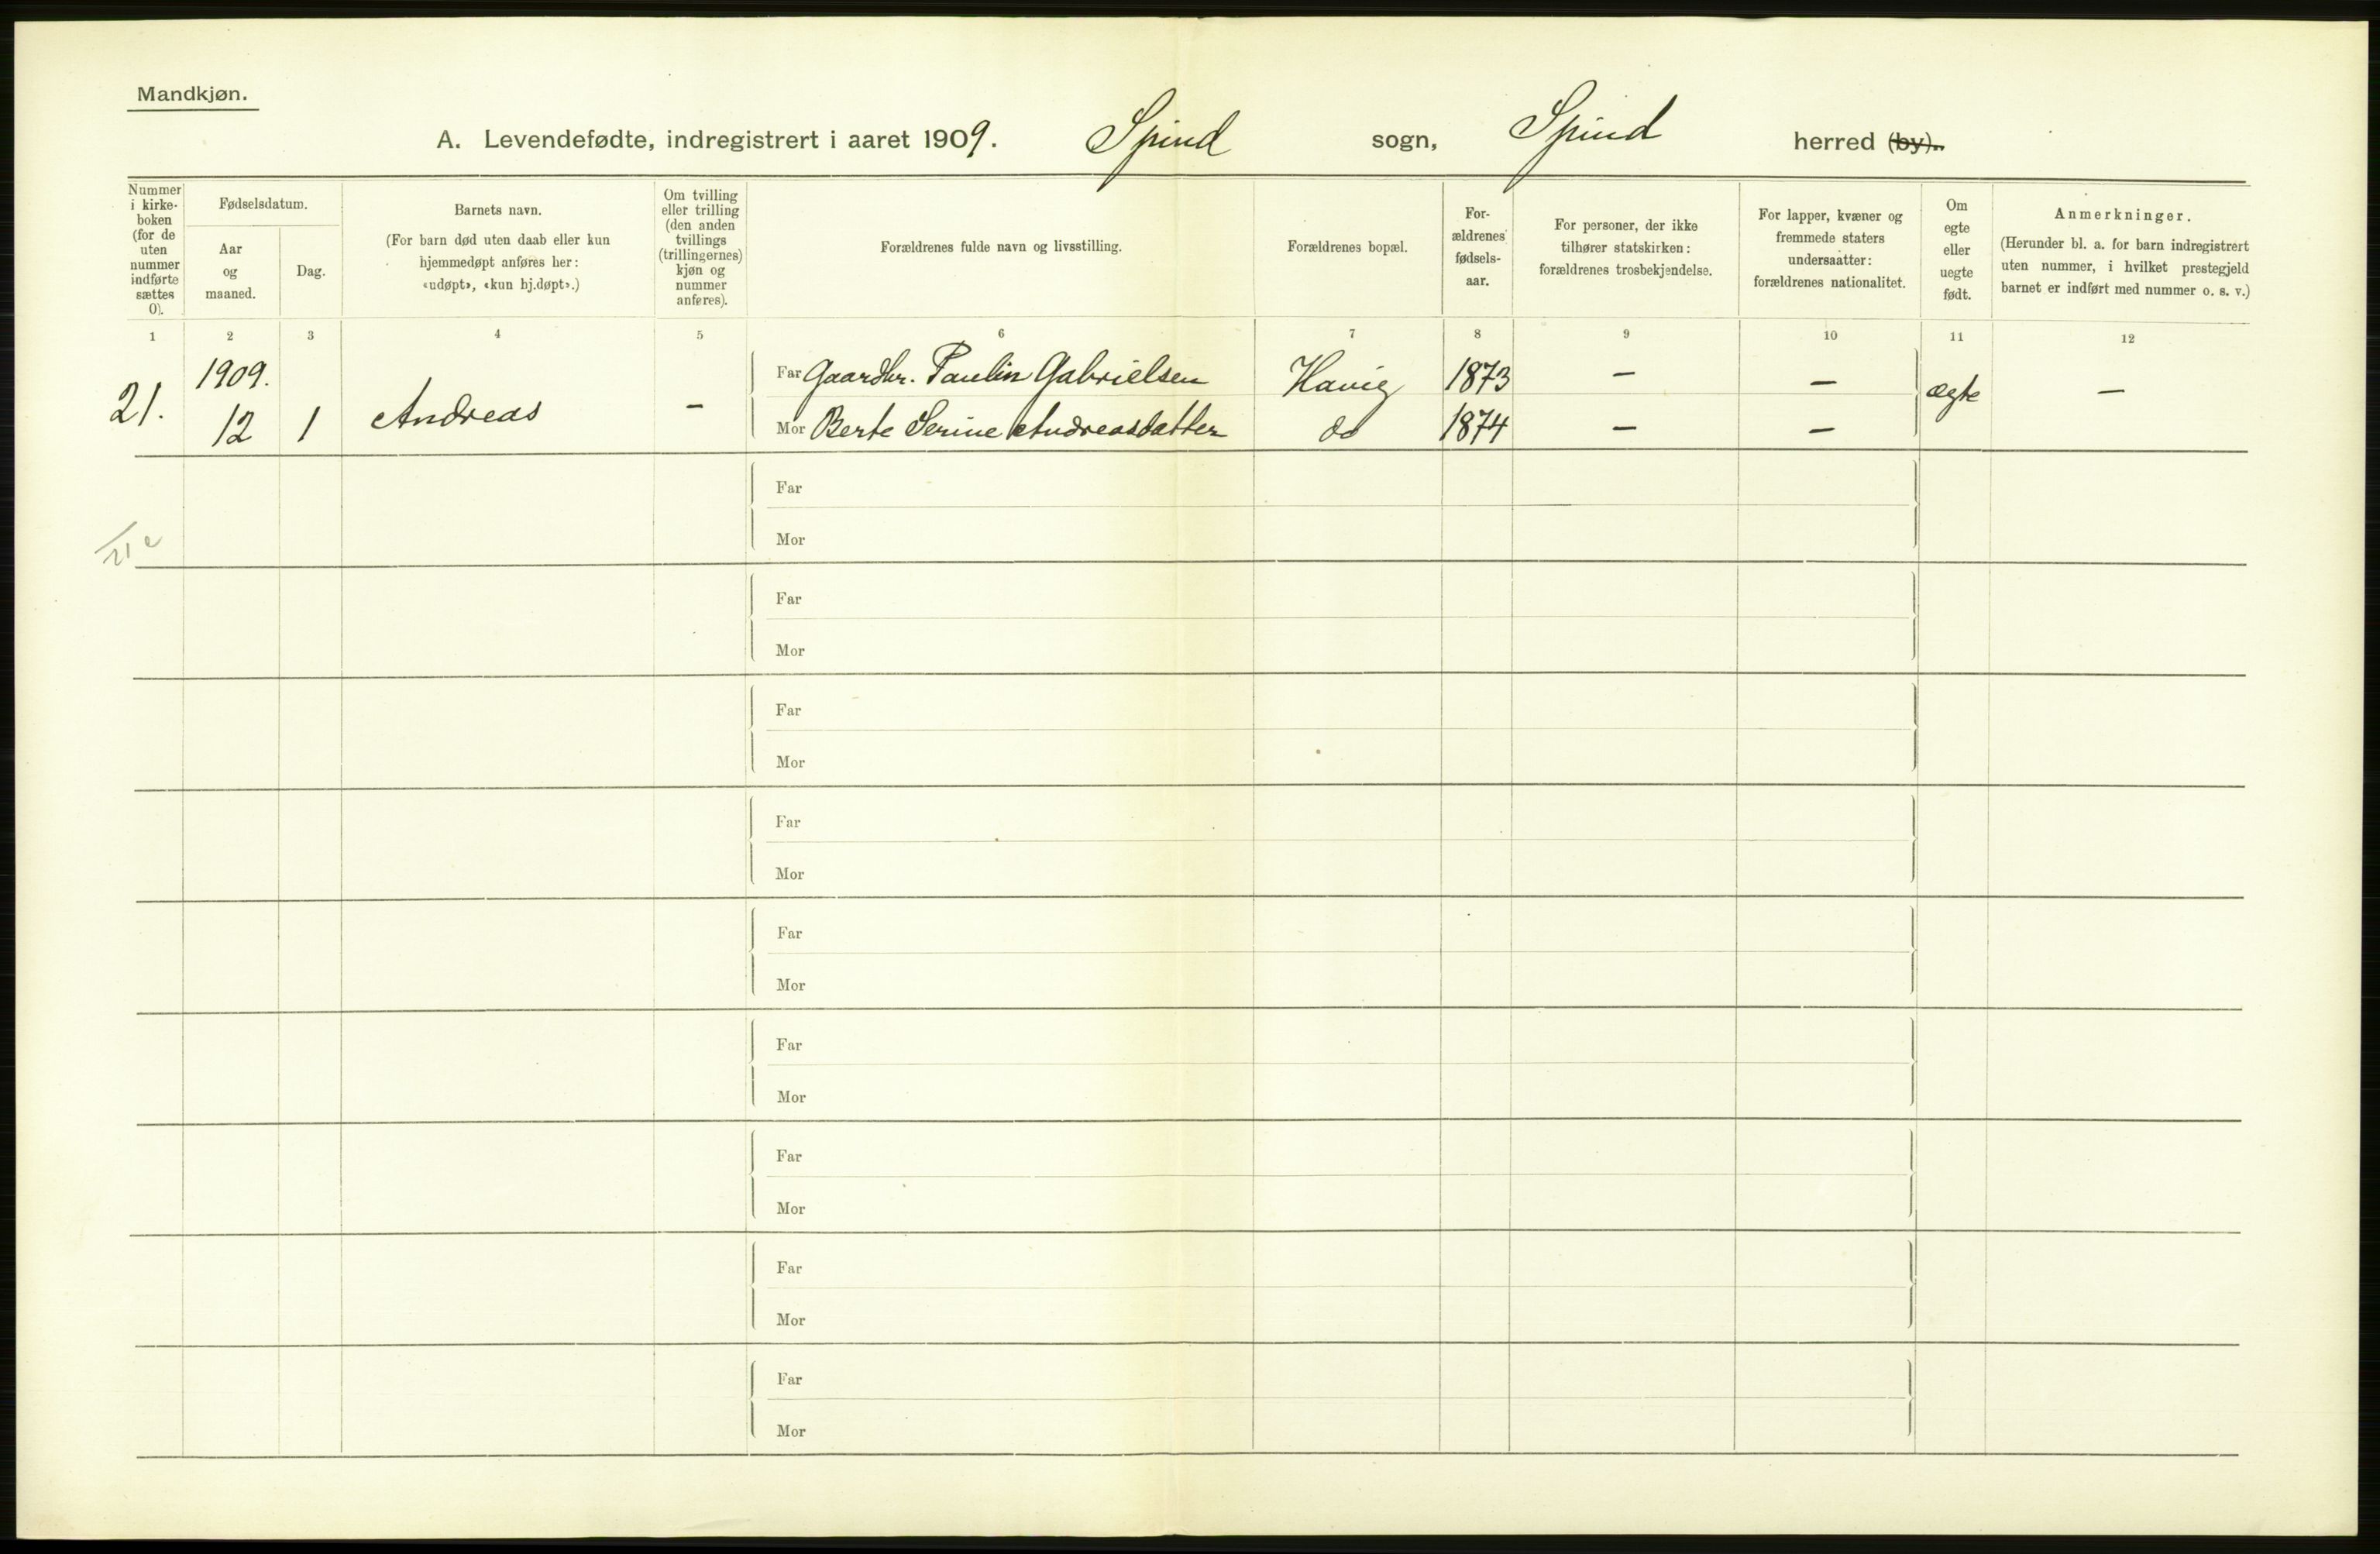 Mandkjøn.
A. Levendefødte, indregistrert i aaret 1909. Spind sogn, Spind herred (by).
Nummer i kirke-boken (for de uten nummer indførte sættes 0).
Fødselsdatum.
Aar og maaned.
Dag.
Barnets navn.
(For barn død uten daab eller kun hjemmedøpt anføres her: «udøpt», «kun hj.døpt».)
Om tvilling eller trilling (den anden tvillings (trillingernes) kjøn og nummer anføres).
Forældrenes fulde navn og livsstilling.
Forældrenes bopæl.
For-ældrenes fødsels-aar.
For personer, der ikke tilhører statskirken: forældrenes trosbekjendelse.
For lapper, kvæner og fremmede staters undersaatter: forældrenes nationalitet.
Om egte eller uegte født.
Anmerkninger.
(Herunder bl. a. for barn indregistrert uten nummer, i hvilket prestegjeld barnet er indført med nummer o. s. v.)
1 2 3 4 5 6 7 8 9 10 11 12
21. 1909. 12 1 Andreas -
Far Gaardbr. Paulin Gabrielsen Havig 1873 - - ægte -
Mor Berte Serine Andreasdatter do 1874 - -
Far
Mor
Far
Mor
Far
Mor
Far
Mor
Far
Mor
Far
Mor
Far
Mor
Far
Mor
Far
Mor